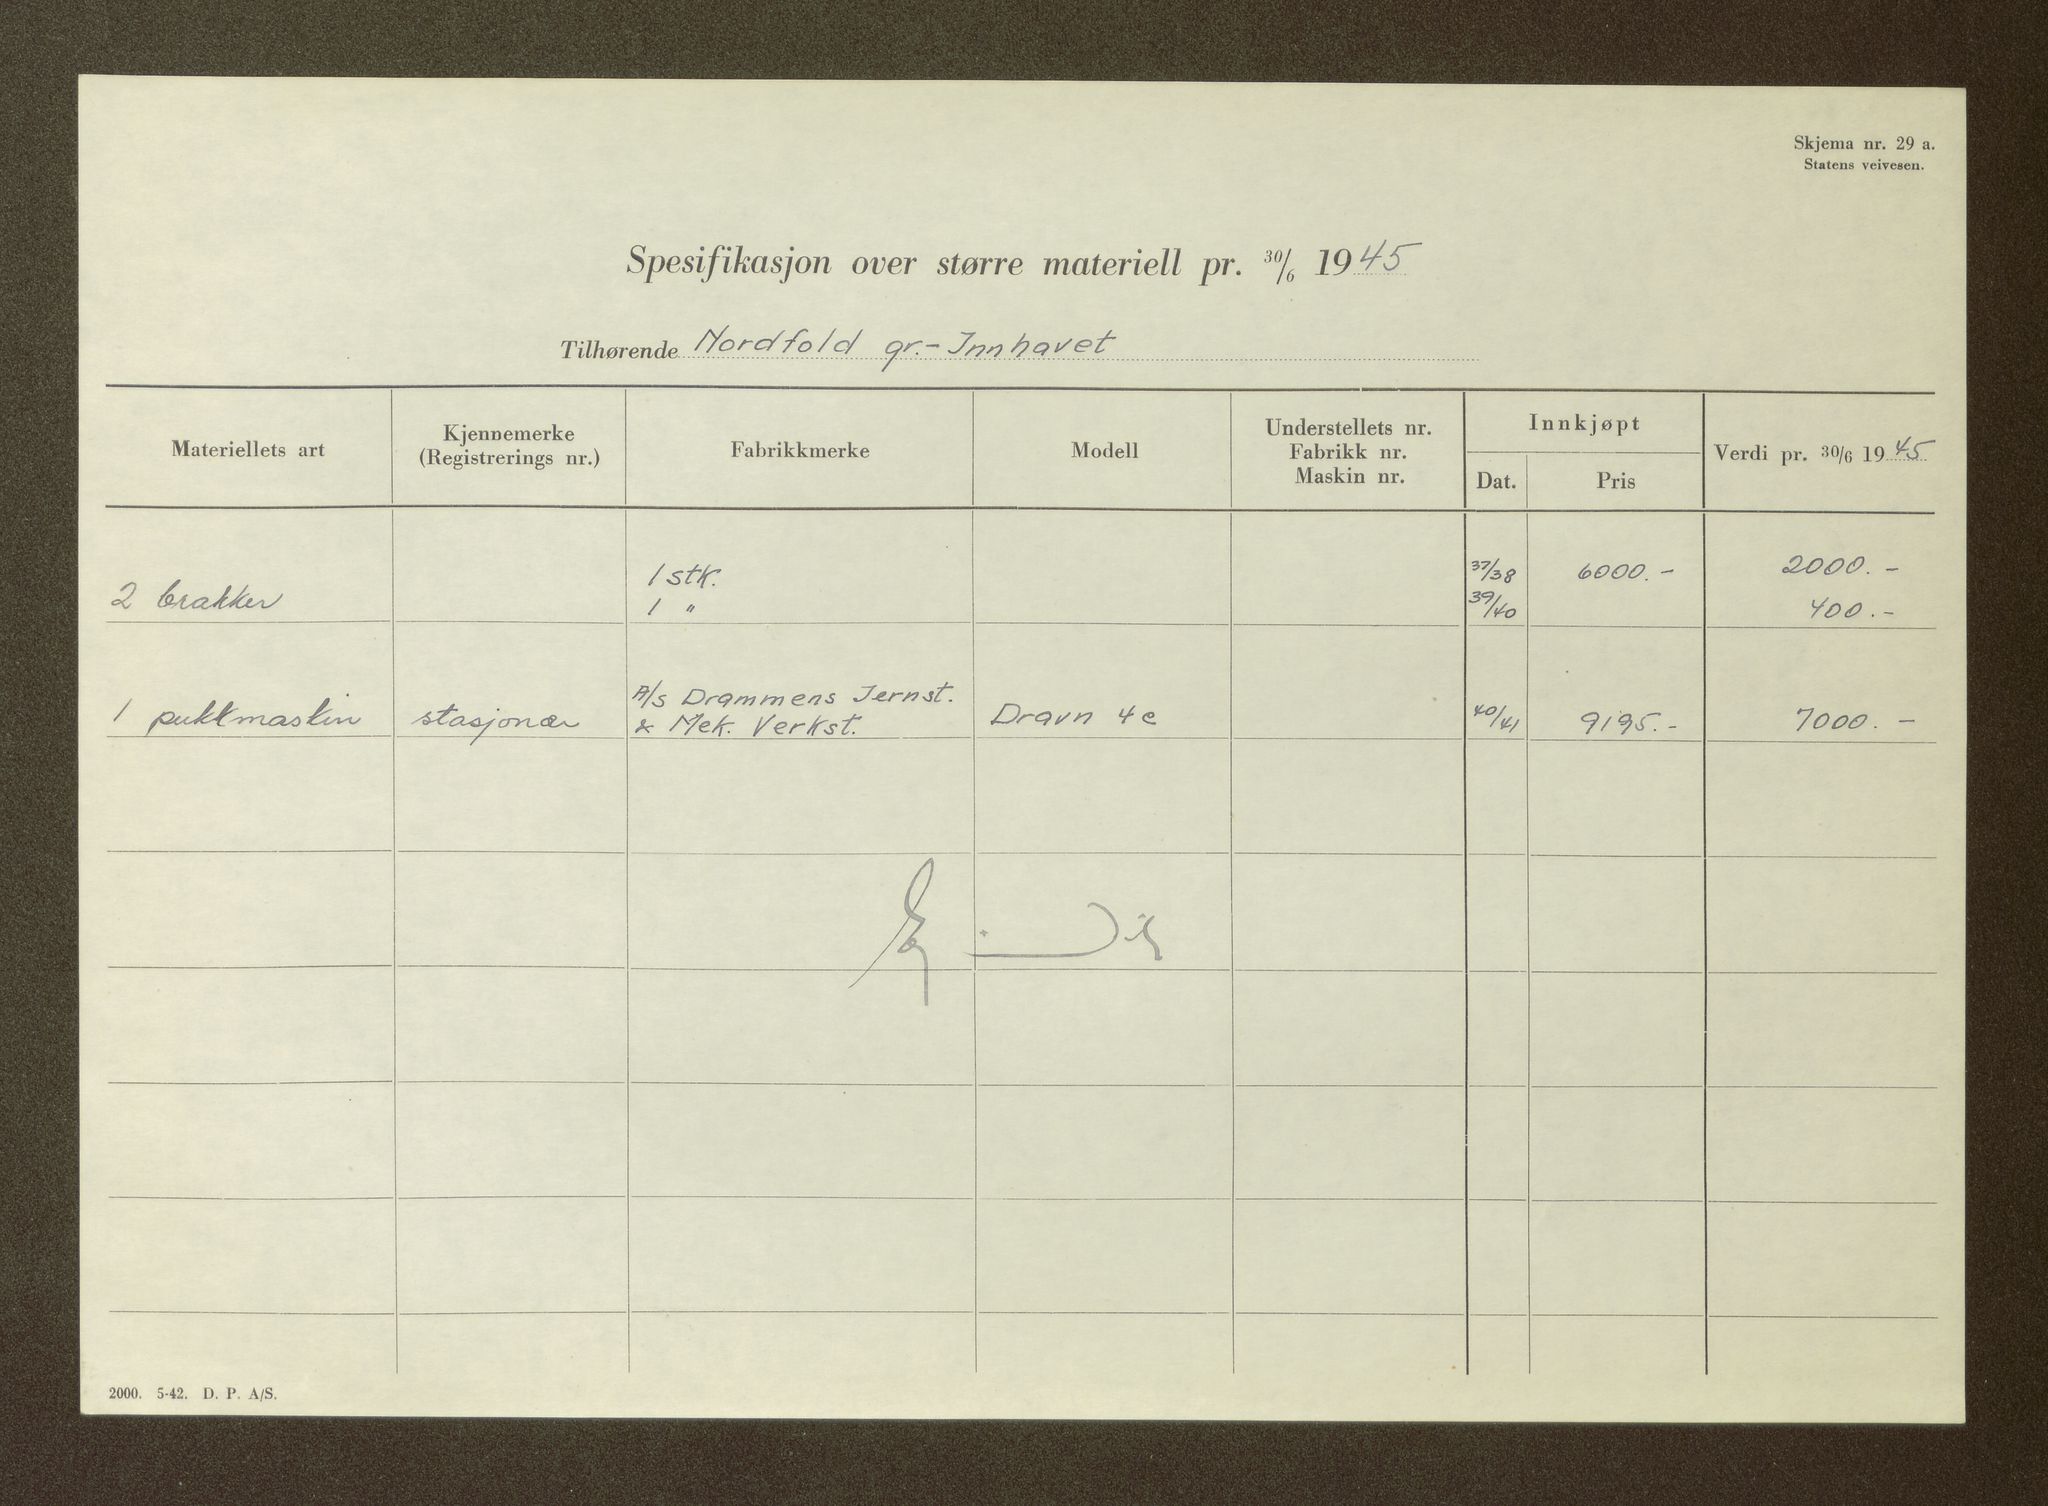 Skjema nr. 29 a.
Statens veivesen.
Spesifikasjon over større materiell pr. 30/6 1945
Tilhørende Nordfold gr.- Innhavet
Materiellets art
Kjennemerke
(Registrerings nr.)
Fabrikkmerke
Modell
Understellets nr.
Fabrikk nr.
Maskin nr.
Innkjøpt
Dat.
Pris
Verdi pr. 30/6 1945
1 stk. 37/38 6000.- 2000.-
2 brakker 1 " 39/40 400.-
A/s Drammens Jernst.
1 pukkmaskin stasjonær & Mek. Verkst. Dravn 4c 40/41 9195.- 7000.-
2000. 5-42. D. P. A/S.